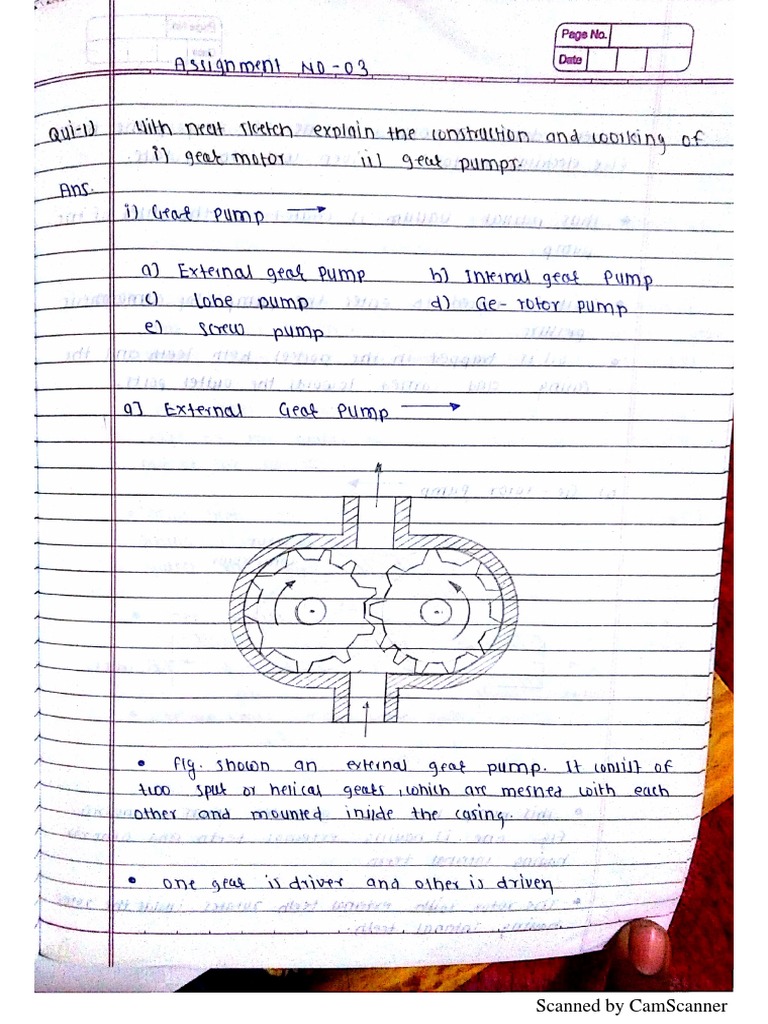 Page No.
Date
Assignment NO-03
Qui-1) With neat sketch explain the construction and working of
i) gear motor ii) gear pumps.
Ans.
i) Gear Pump →
a) External gear pump b) Internal gear Pump
c) Lobe pump d) Ge-rotor pump
e) Screw pump
a] External Gear Pump →
• Fig. shown an external gear pump. It consist of
two spur or helical gears, which are meshed with each
other and mounted inside the casing.
• One gear is driver and other is driven
Scanned by CamScanner